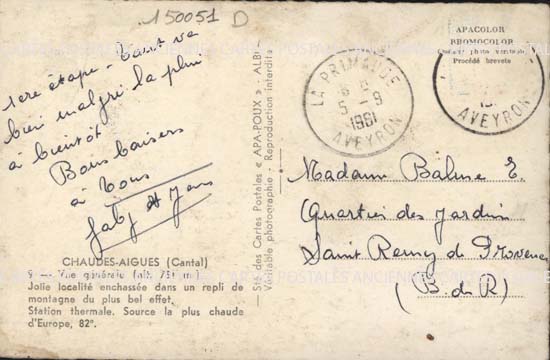 150051 D
1ère étape - tout va
bien malgré la pluie
à bientôt
Bons baisers
à tous
Gaby et Jans
CHAUDES-AIGUES (Cantal)
9 — Vue générale (alt. 750 m)
Jolie localité enchassée dans un repli de
montagne du plus bel effet.
Station thermale. Source la plus chaude
d'Europe, 82°.
Sté des Cartes Postales « APA-POUX » - ALBI
Véritable photographie - Reproduction interdite
APACOLOR
BROMOCOLOR
Procédé breveté
LA PRIMAUBE
5 - 9
1961
AVEYRON
AVEYRON
Madame Balme E.
Quartier des Jardins
Saint Remy de Provence
(B. d R)